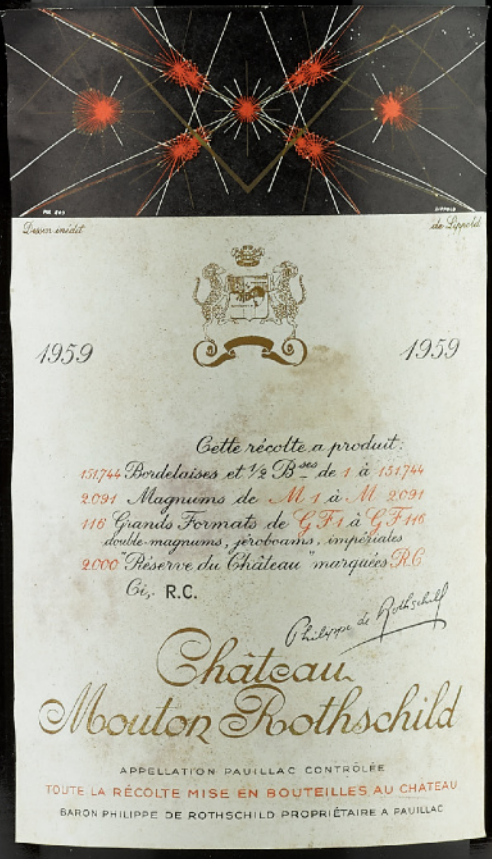 LIPPOLD
Dessin inédit de Lippold
1959 1959
Cette récolte a produit:
151,744 Bordelaises et 1/2 Bses de 1 à 151,744
2.091 Magnums de M 1 à M 2.091
116 Grands Formats de GF1 à GF 116
double-magnums, jéroboams, impériales
2.000 "Réserve du Château" marquées R.C
Ci, R.C.
Philippe de Rothschild
Château
Mouton Rothschild
APPELLATION PAUILLAC CONTRÔLÉE
TOUTE LA RÉCOLTE MISE EN BOUTEILLES AU CHATEAU
BARON PHILIPPE DE ROTHSCHILD PROPRIÉTAIRE A PAUILLAC